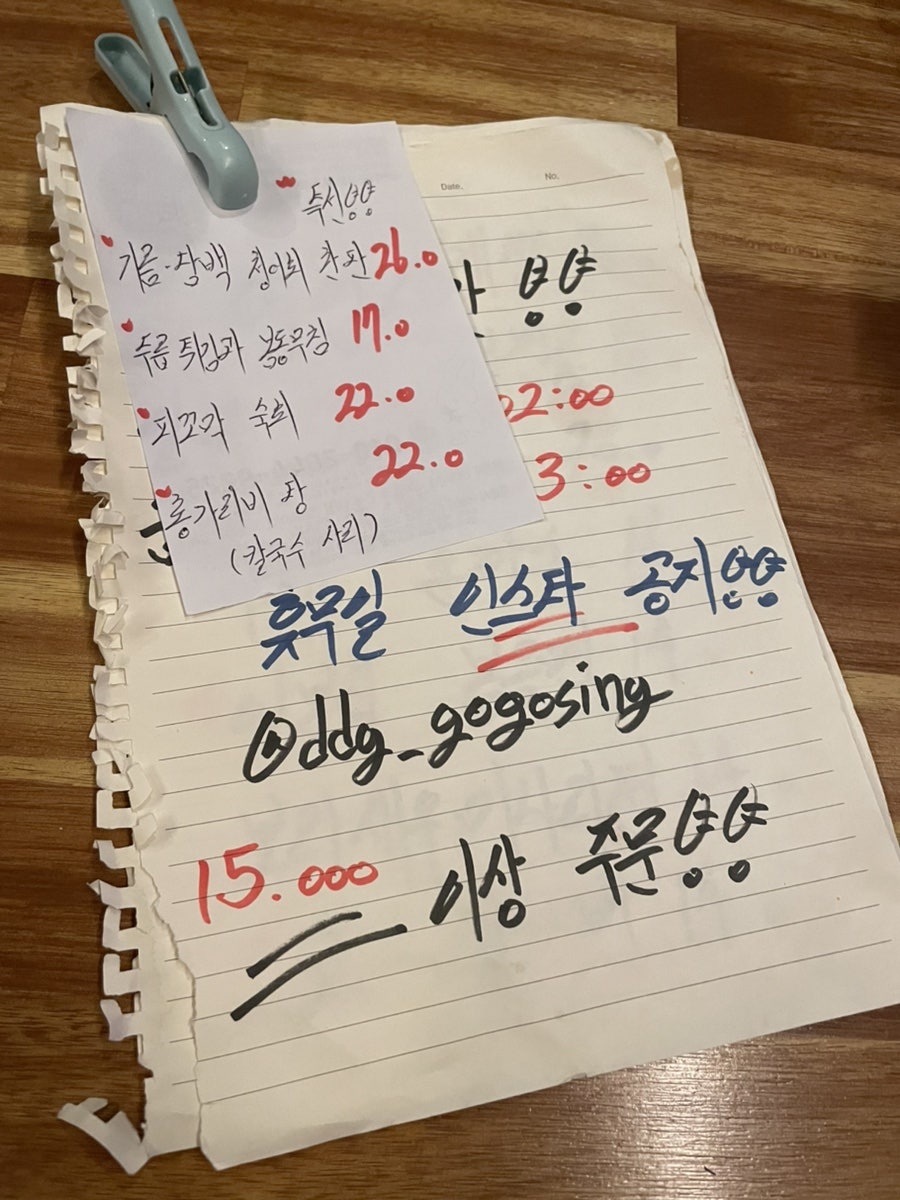 특선!!
청어회 한판 26.0
튀김과 봄동무침 17.0
피꼬막 숙회 22.0
홍가리비 탕 22.0
(칼국수 사리)
Date. No.
!!
02:00
3:00
휴무일 인스타 공지!!
@ddg_gogosing
15.000 이상 주문!!